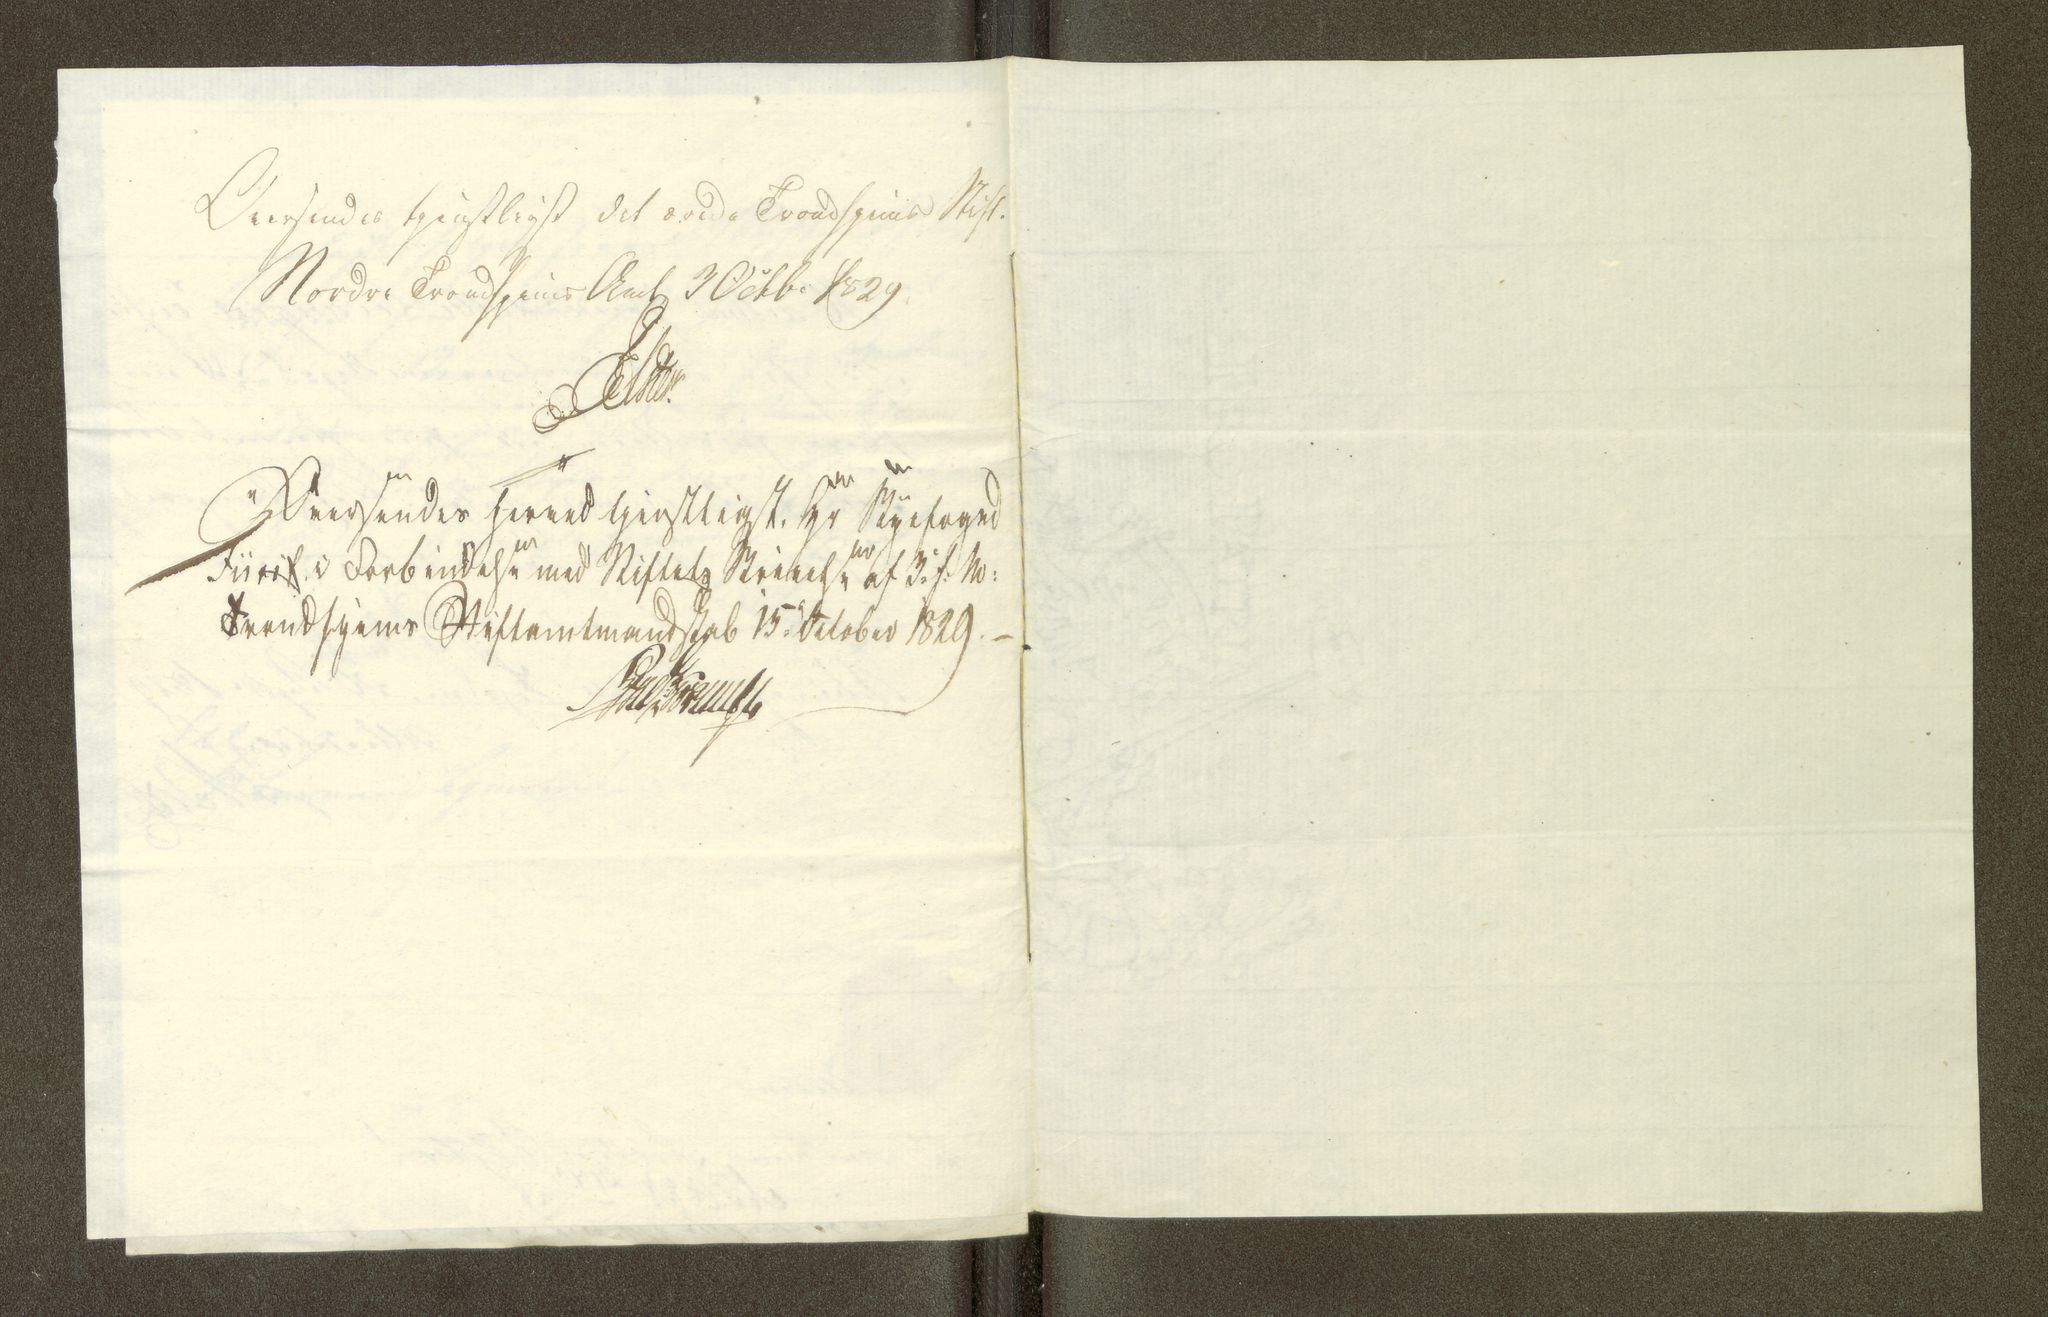 Oversendes tjenstligst det ærede Trondhjems Stift.
Nordre Trondhjems Amt 3 Octb. 1829.
Elster.
Oversendes herved tjenstligst Hr Byefoged
i Forbindelse med Stiftets Skrivelse af 3. f. M:
Trondhjems Stiftamtmandskab 15de October 1829. –